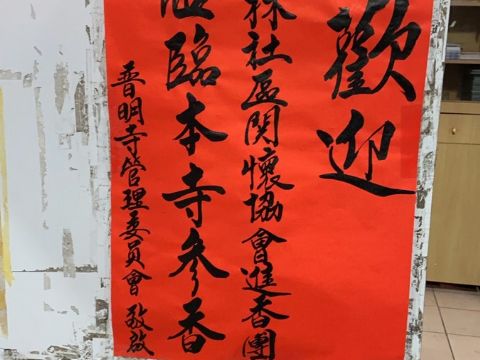 歡迎
林社區関懷協會進香團
蒞臨本寺參香
普明寺管理委員會 敬啟